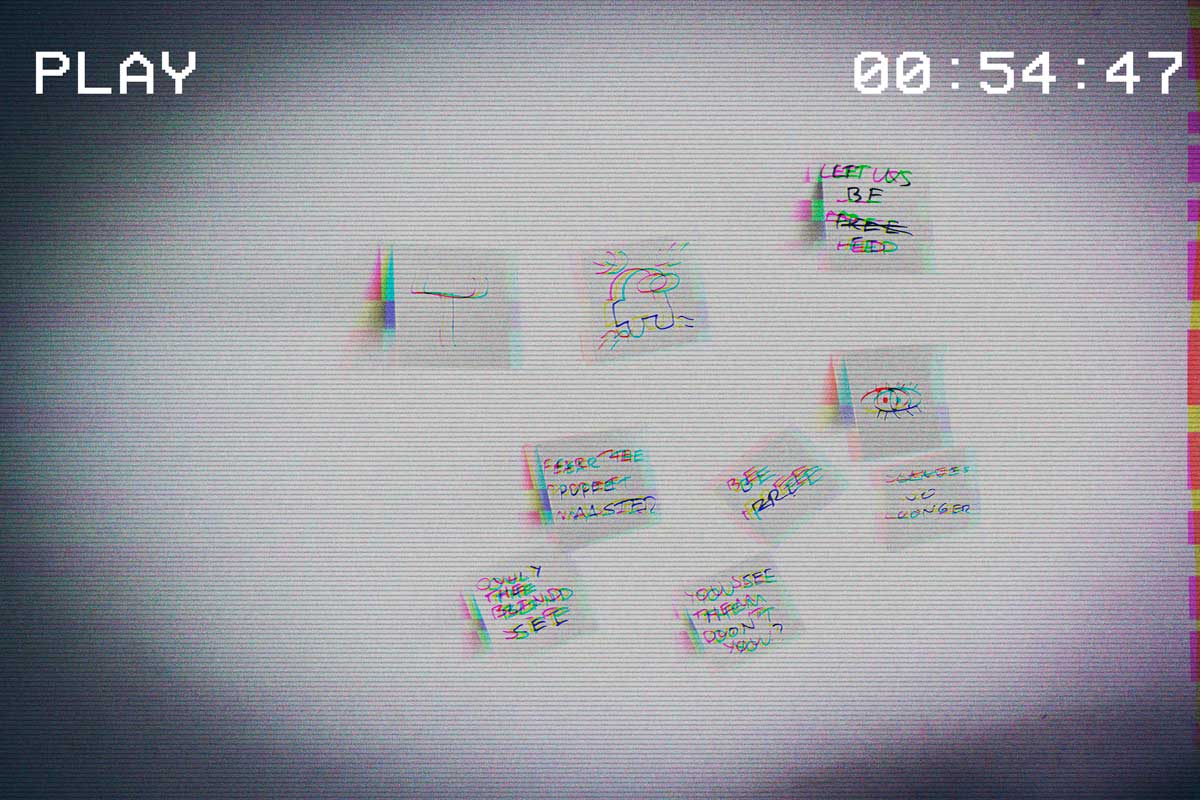 PLAY
00:54:47
LET US
BE
FREE
FEAR THE
PUPPET
MASTER
BE
FREE
SLAVES
NO
LONGER
ONLY
THE
BLIND
SEE
YOU SEE
THEM
DON'T
YOU?